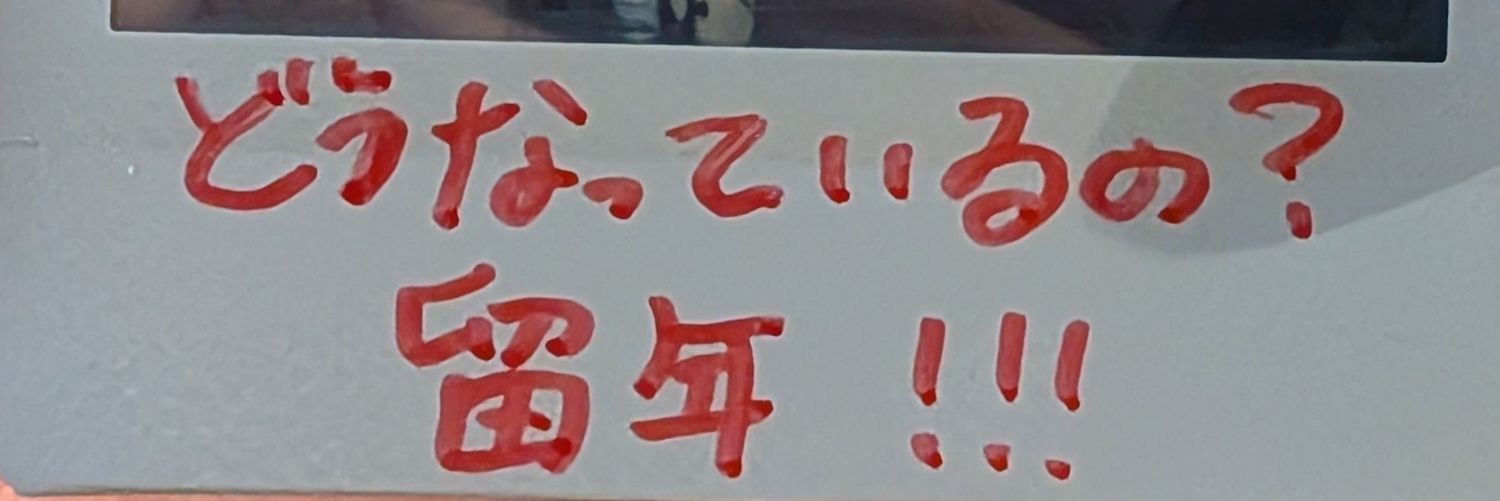 どうなっているの?
留年!!!